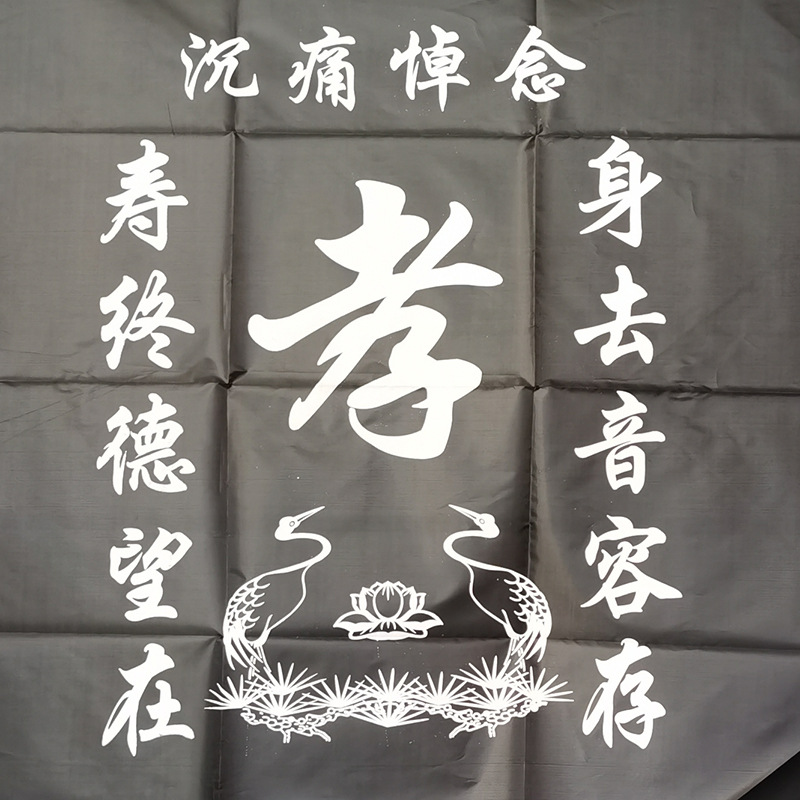 沉痛悼念
寿终德望在
孝
身去音容存